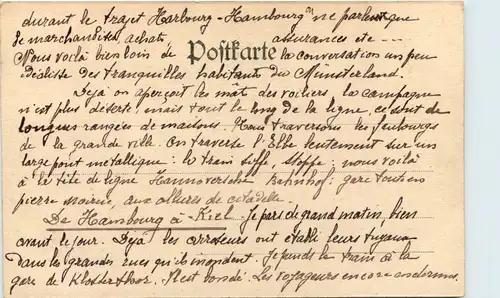 durant le trajet Harbourg-Hambourg ne parlent que
de marchandises, achats assurances etc ...
Nous voilà bien loin de la conversation un peu
Postkarte
idéaliste des tranquilles habitants du Munsterland.
Déjà on aperçoit les mats des voiliers, la campagne
n'est plus déserte, mais tout le long de la ligne, ce sont de
longues rangées de maisons. Nous traversons les faubourgs
de la grande ville. On traverse l'Elbe lentement sur un
large pont métallique : le train siffle, stoppe : nous voilà
à la tête de ligne Hannoversche Bahnhof : gare tout en
pierre noircie, aux allures de citadelle.
De Hambourg à Kiel. Je pars de grand matin, bien
avant le jour. Déjà les arroseurs ont établi leurs tuyaux
dans les grandes rues qu'ils inondent. Je prends le train à la
gare de Klosterthor. Il est bondé. Les voyageurs encore endormis